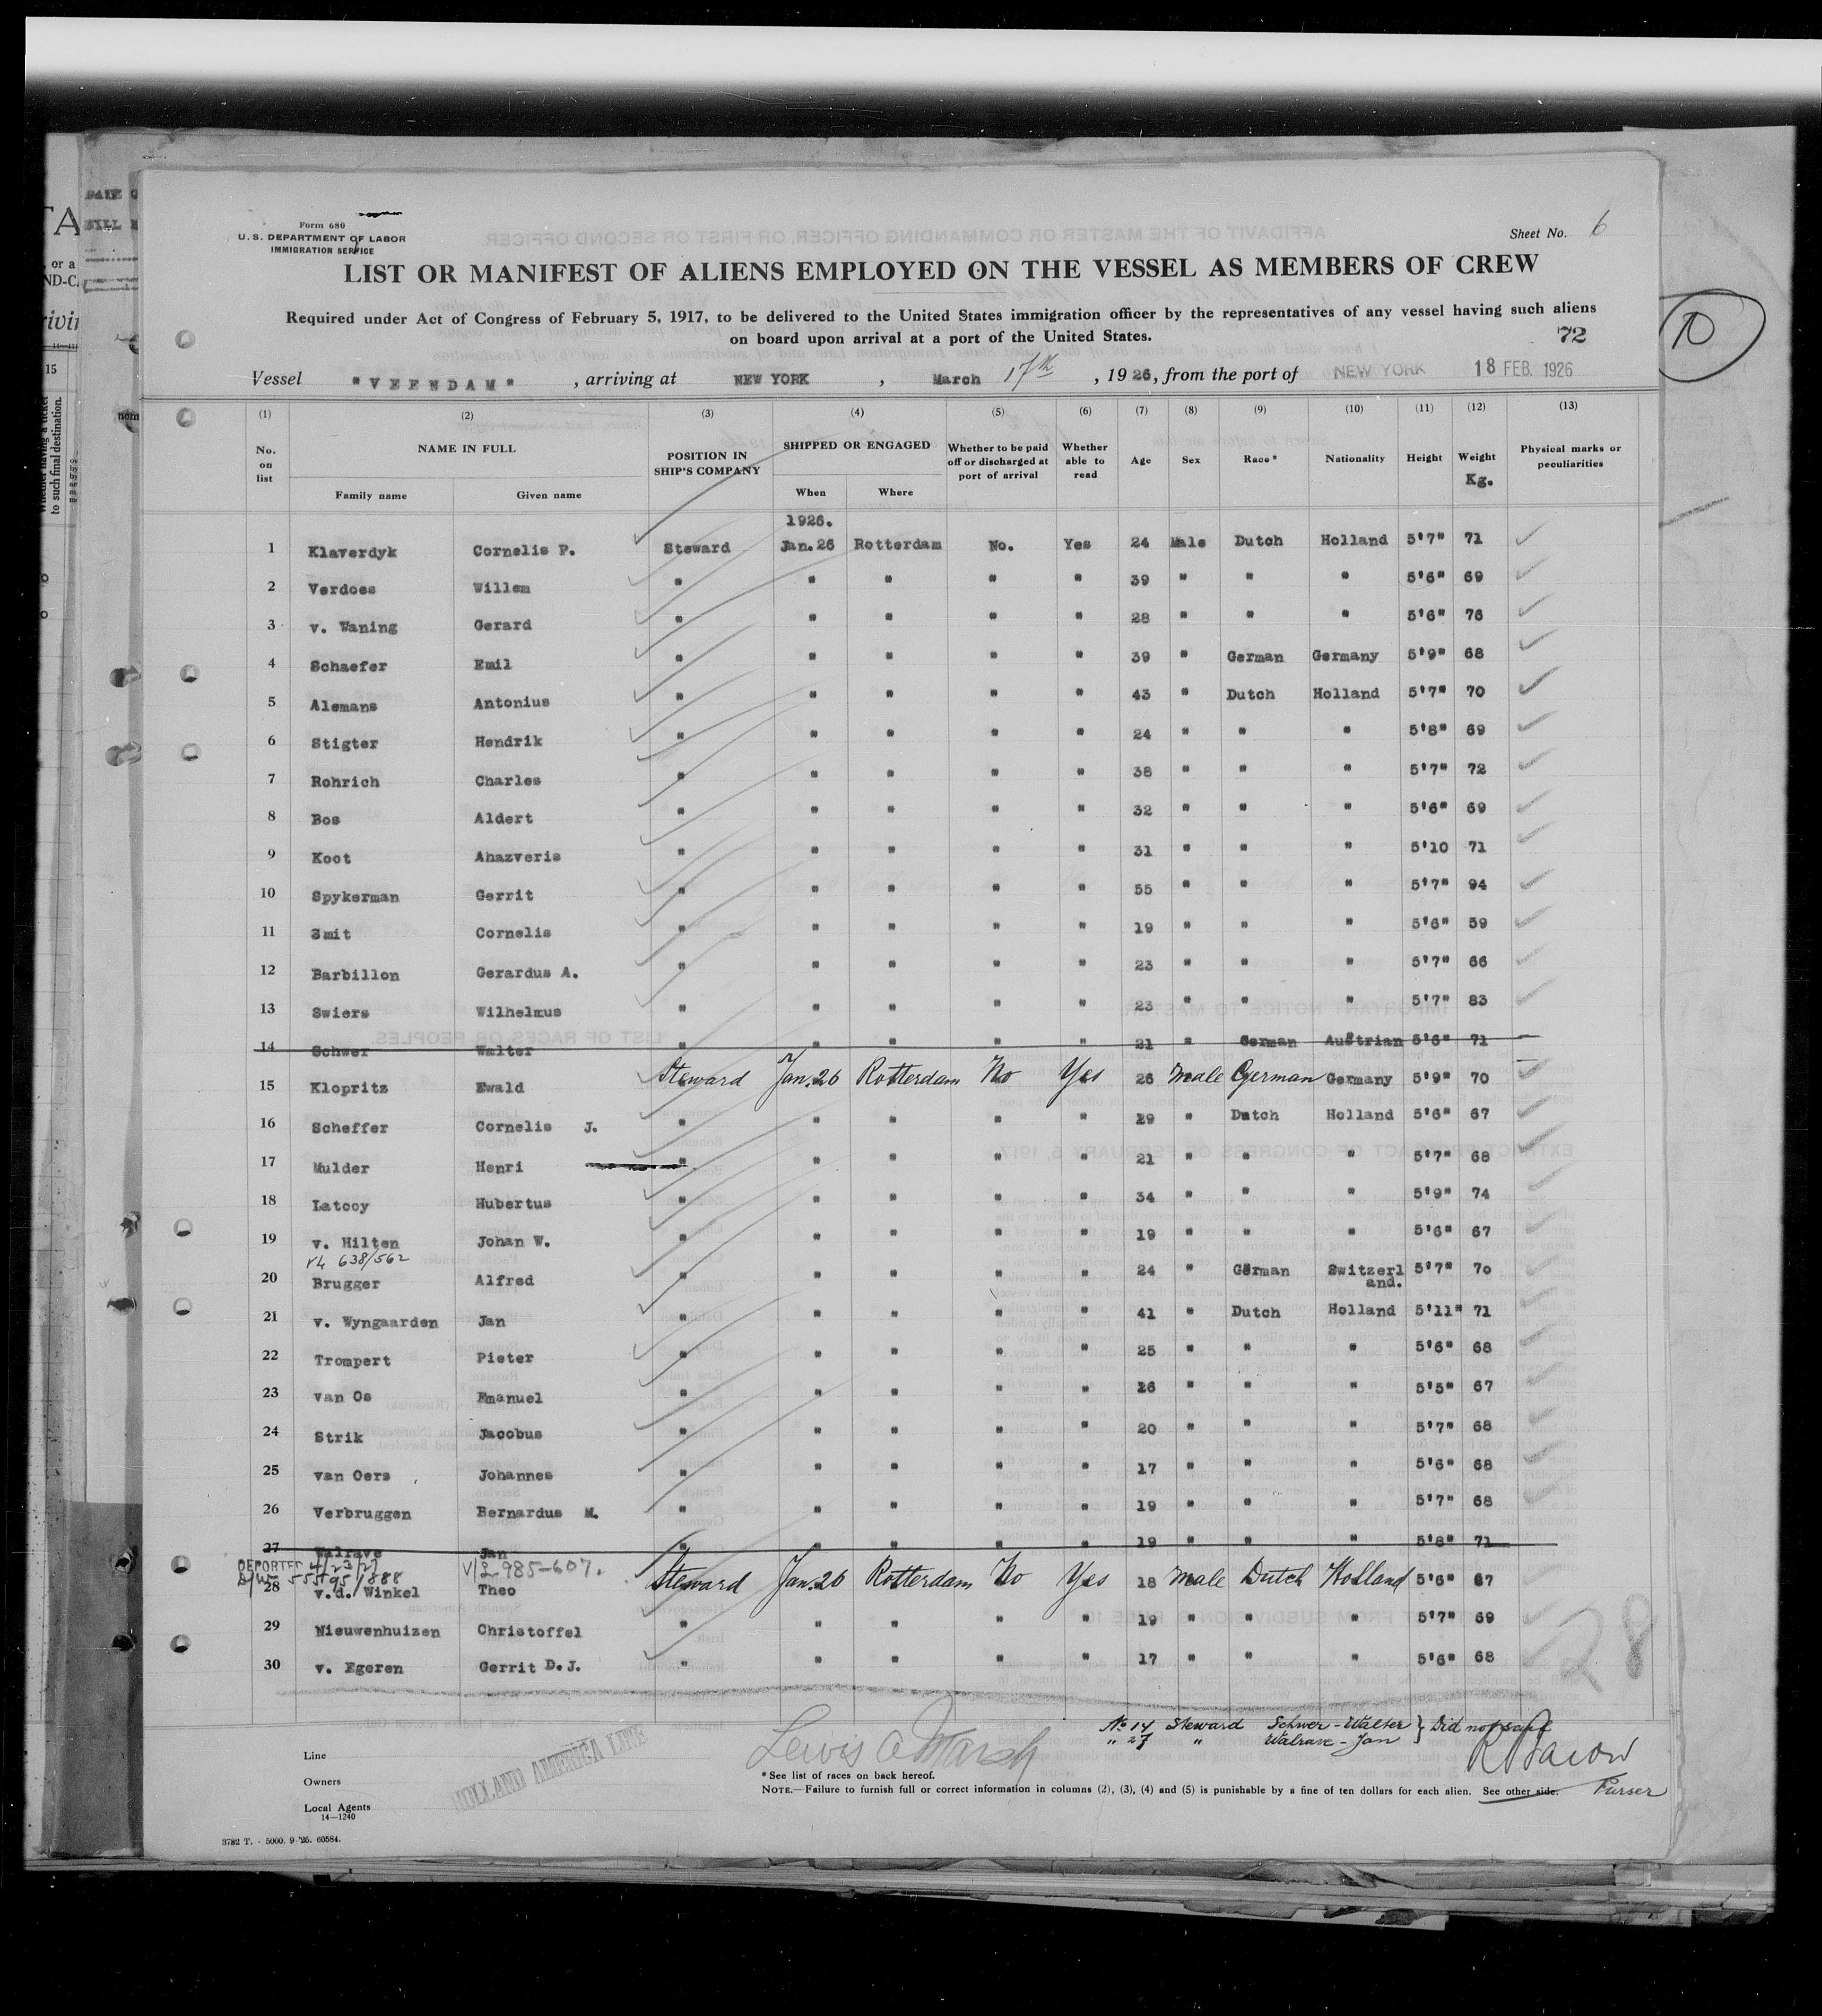 Form 680
U. S. DEPARTMENT OF LABOR
IMMIGRATION SERVICE
Sheet No. 6
LIST OR MANIFEST OF ALIENS EMPLOYED ON THE VESSEL AS MEMBERS OF CREW
Required under Act of Congress of February 5, 1917, to be delivered to the United States immigration officer by the representatives of any vessel having such aliens
on board upon arrival at a port of the United States.
72
10
Vessel "VEENDAM", arriving at NEW YORK, March 17th, 1926, from the port of NEW YORK 18 FEB. 1926
(1) (2) (3) (4) (5) (6) (7) (8) (9) (10) (11) (12) (13)
No. on list NAME IN FULL Family name Given name POSITION IN SHIP'S COMPANY SHIPPED OR ENGAGED When Where Whether to be paid off or discharged at port of arrival Whether able to read Age Sex Race* Nationality Height Weight Kg. Physical marks or peculiarities
1926.
1 Klaverdyk Cornelis P. Steward Jan.26 Rotterdam No. Yes 24 Male Dutch Holland 5'7" 71
2 Verdoes Willem " " " " " 39 " " " 5'6" 69
3 v. Waning Gerard " " " " " 28 " " " 5'6" 76
4 Schaefer Emil " " " " " 39 " German Germany 5'9" 68
5 Alemans Antonius " " " " " 43 " Dutch Holland 5'7" 70
6 Stigter Hendrik " " " " " 24 " " " 5'8" 69
7 Rohrich Charles " " " " " 38 " " " 5'7" 72
8 Bos Aldert " " " " " 32 " " " 5'6" 69
9 Koot Ahazveris " " " " " 31 " " " 5'10 71
10 Spykerman Gerrit " " " " " 55 " " " 5'7" 94
11 Smit Cornelis " " " " " 19 " " " 5'6" 59
12 Barbillon Gerardus A. " " " " " 23 " " " 5'7" 66
13 Swiers Wilhelmus " " " " " 23 " " " 5'7" 83
14 Schwer Walter " " " " " 21 " German Austrian 5'6" 71
15 Klopritz Ewald Steward Jan.26 Rotterdam No Yes 26 Male German Germany 5'9" 70
16 Scheffer Cornelis J. " " " " " 29 " Dutch Holland 5'6" 67
17 Mulder Henri " " " " " 21 " " " 5'7" 68
18 Latooy Hubertus " " " " " 34 " " " 5'9" 74
19 v. Hilten Johan W. " " " " " 19 " " " 5'6" 67
638/562
20 Brugger Alfred " " " " " 24 " German Switzerl and. 5'7" 70
21 v. Wyngaarden Jan " " " " " 41 " Dutch Holland 5'11" 71
22 Trompert Pieter " " " " " 25 " " " 5'6" 68
23 van Os Emanuel " " " " " 26 " " " 5'5" 67
24 Strik Jacobus " " " " " 20 " " " 5'7" 68
25 van Oers Johannes " " " " " 17 " " " 5'6" 68
26 Verbruggen Bernardus M. " " " " " 19 " " " 5'7" 68
27 Walrave Jan " " " " " 19 " " " 5'8" 71
DEPORTED 4/23/27 V/L-985-607.
28 v.d. Winkel Theo Steward Jan.26 Rotterdam No Yes 18 Male Dutch Holland 5'6" 67
29 Nieuwenhuizen Christoffel " " " " " 19 " " " 5'7" 69
30 v. Egeren Gerrit D.J. " " " " " 17 " " " 5'6" 68
28
No 14 Steward Schwer - Walter } Did not sail
" 27 " Walrave - Jan
Lewis A Marsh
Line
Owners
Local Agents
HOLLAND AMERICA LINE
14—1240
* See list of races on back hereof.
NOTE.—Failure to furnish full or correct information in columns (2), (3), (4) and (5) is punishable by a fine of ten dollars for each alien. See other side.
Purser
3782 T. - 5000. 9-'25. 60584.